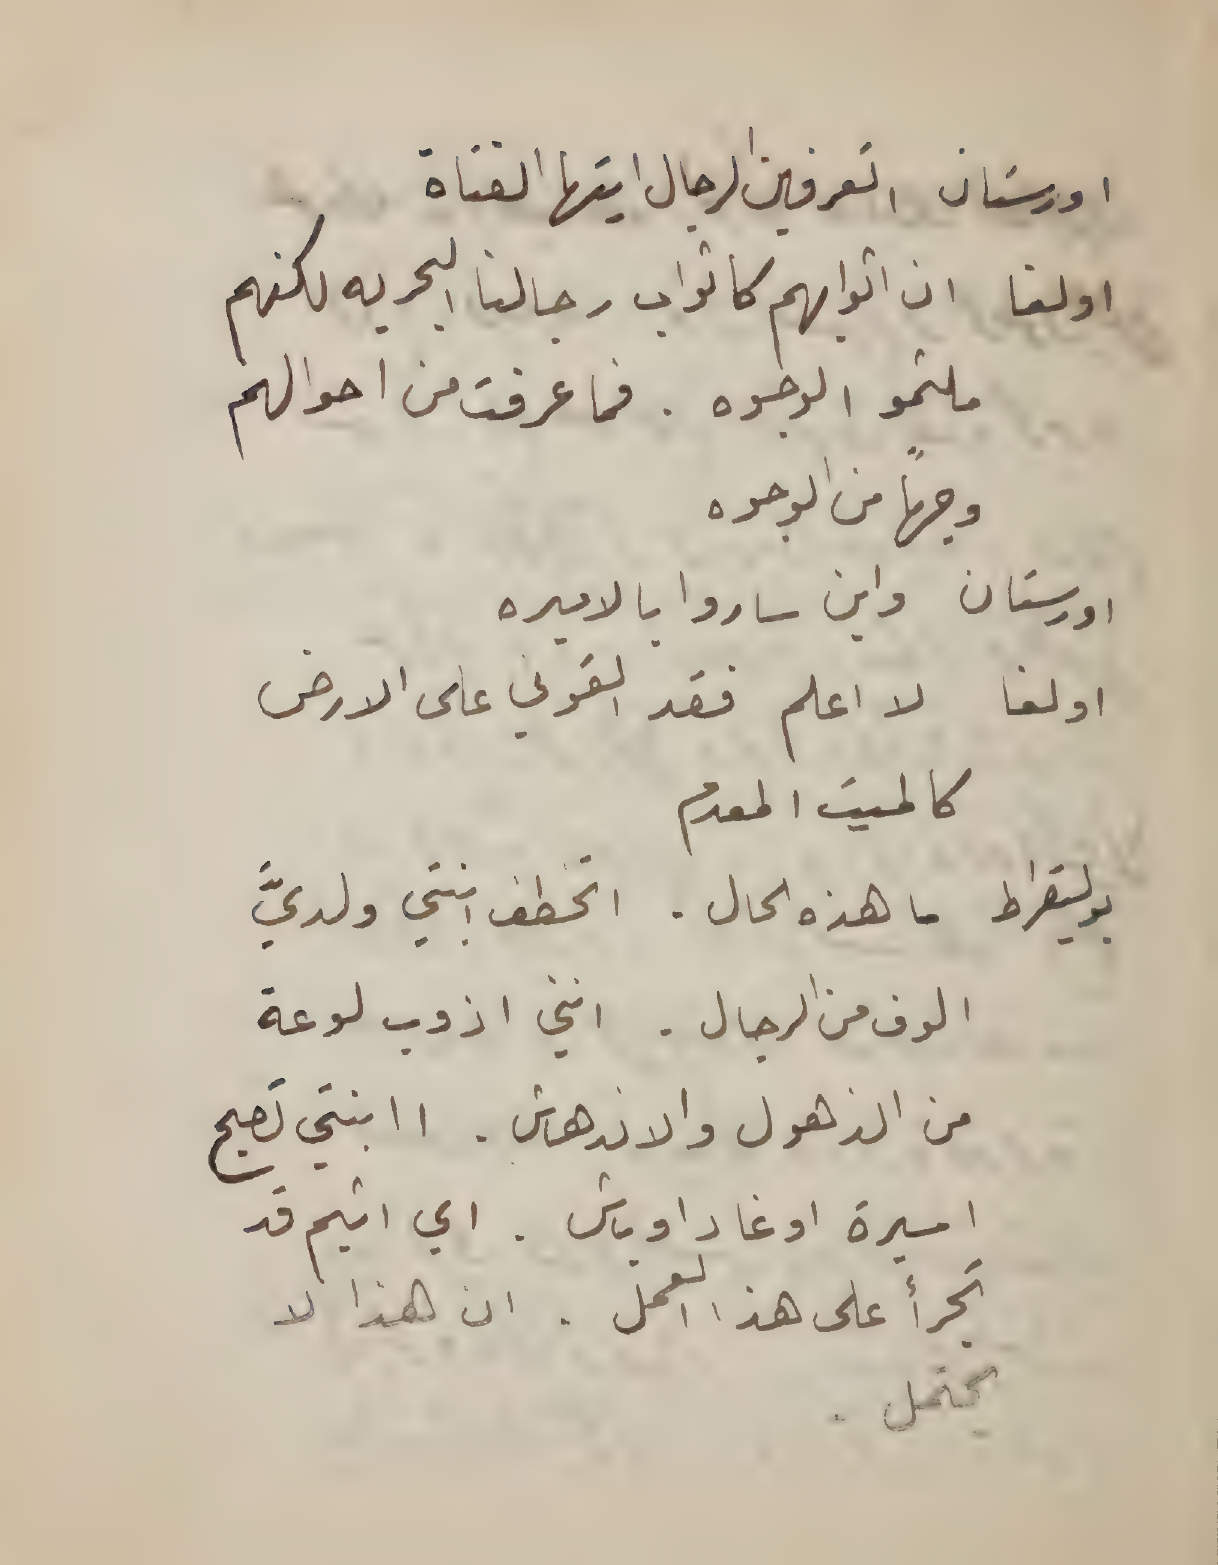 اورستان اتعرفين الرجال ايتها الفتاة
اولغا ان اثوابهم كاثواب رجالنا البحريه لكنهم
ملثمو الوجوه . فما عرفت من احوالهم
وجهاً من الوجوه
اورستان واين ساروا بالاميره
اولغا لا اعلم فقد القوني على الارض
كالميت المعدم
بوليقراط ما هذه الحال . اتخطف ابنتي ولديَّ
الوف من الرجال . انني اذوب لوعة
من الذهول والاندهاش . اابنتي تصبح
اسيرة اوغاد اوباش . اي اثيم قد
تجرأ على هذا العمل . ان هذا لا
يحتمل .